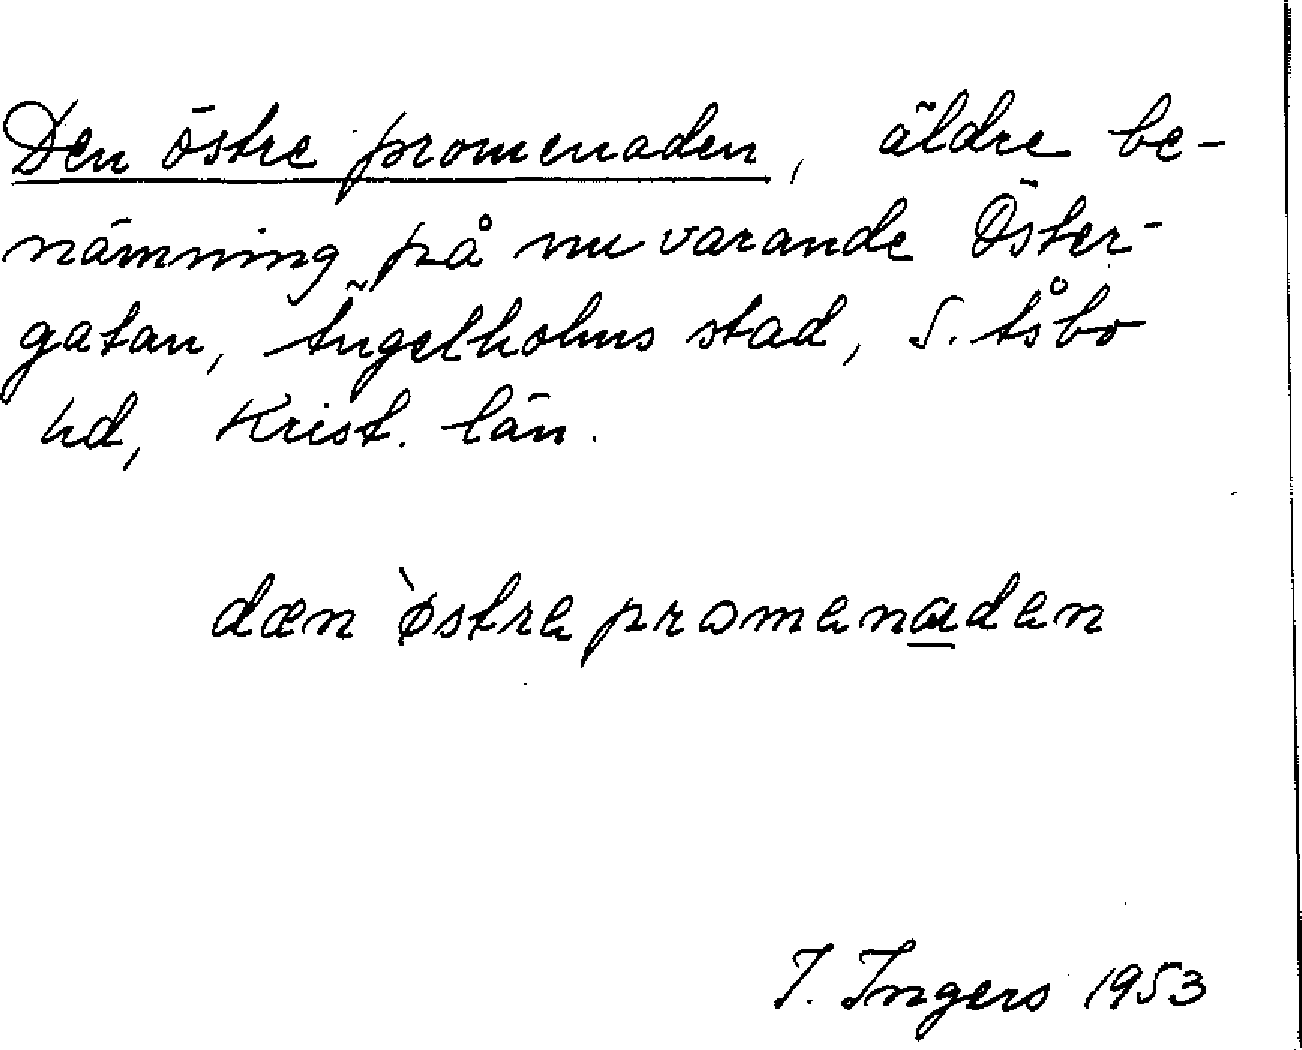 Den östre promenaden, äldre be-
nämning på nuvarande Öster-
gatan, Ängelholms stad, S. Åsbo
hd, Krist. län.
dæn östre promenaden
I. Ingers 1953